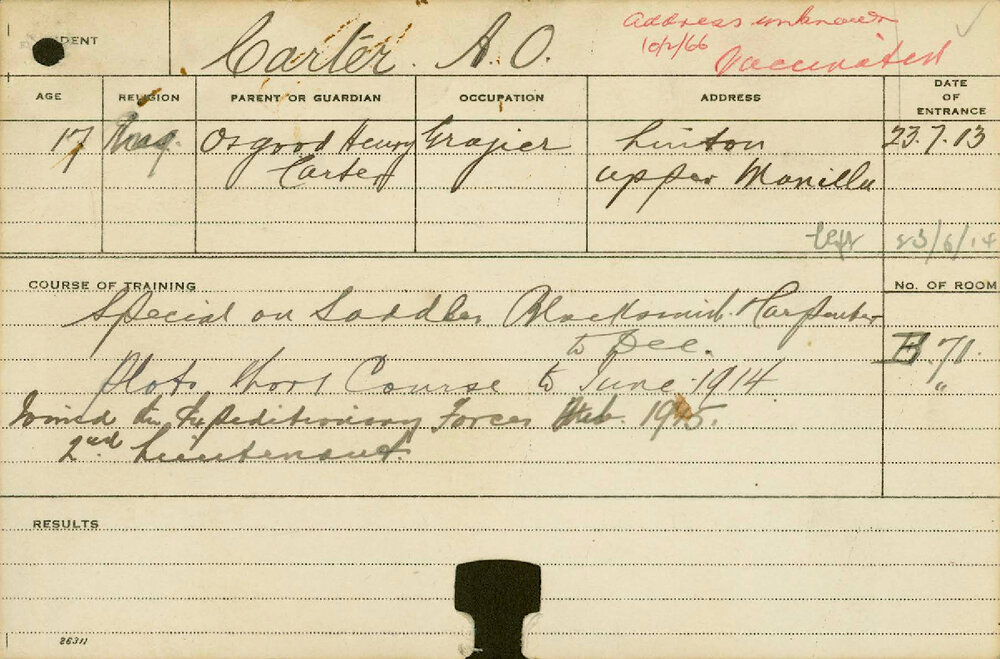 Carter. A. O.
Address unknown
10/2/66
Vaccinated
AGE RELIGION PARENT OR GUARDIAN OCCUPATION ADDRESS DATE OF ENTRANCE
17 Osgood Henry Grazier Linton 23.7.13
Carter upper Manilla
left 23/6/14
COURSE OF TRAINING No. OF ROOM
Special on Saddler Blacksmith Carpenter
to Dec. B.71.
Plots Short Course to June 1914 "
Joined the Expeditionary Forces Feb. 1915.
2nd Lieutenant
RESULTS
26311